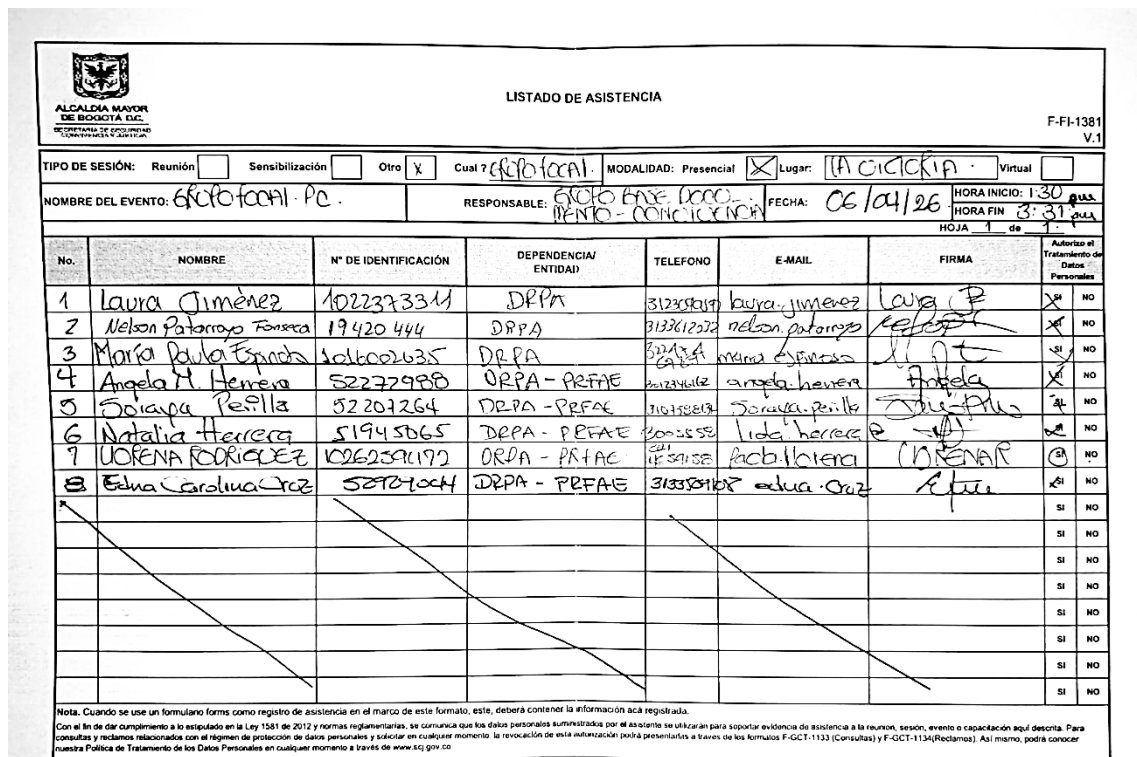 ALCALDÍA MAYOR
DE BOGOTÁ D.C.
SECRETARÍA DE SEGURIDAD
CONVIVENCIA Y JUSTICIA
LISTADO DE ASISTENCIA
F-FI-1381
V.1
TIPO DE SESIÓN: Reunión Sensibilización Otro X Cual ? GRUPO FOCAL. MODALIDAD: Presencial X Lugar: Virtual
NOMBRE DEL EVENTO: GRUPO FOCAL. PC. RESPONSABLE: GRUPO BASE DOCU- FECHA: 06/04/26. HORA INICIO: 1:30 pm
MENTO - HORA FIN 3:31 pm
HOJA 1 de 1.
No. NOMBRE N° DE IDENTIFICACIÓN DEPENDENCIA/ ENTIDAD TELEFONO E-MAIL FIRMA Autorizo el Tratamiento de Datos Personales
1 Laura Jiménez 1022373311 DRPA laura.jimenez SI NO
2 Nelson Patarroyo Fonseca 19420444 DRPA 3133612032 nelson.patarroyo SI NO
3 María Paula Espinosa 1016002635 DRPA maria espinosa SI NO
4 Angela M. Herrera 52272988 DRPA - PRFAE angela.herrera Angela SI NO
5 Soraya Perilla 52207264 DRPA - PRFAE Soraya.perilla SI NO
6 Natalia Herrera 51945065 DRPA - PRFAE lida.herrera SI NO
7 LLORENA RODRIGUEZ DRPA - PRFAE SI NO
8 Edna Carolina Cruz DRPA - PRFAE edna.cruz SI NO
SI NO
SI NO
SI NO
SI NO
SI NO
SI NO
SI NO
SI NO
Nota. Cuando se use un formulario forms como registro de asistencia en el marco de este formato, este, deberá contener la información acá registrada.
Con el fin de dar cumplimiento a lo estipulado en la Ley 1581 de 2012 y normas reglamentarias, se comunica que los datos personales suministrados por el asistente se utilizarán para soportar evidencia de asistencia a la reunión, sesión, evento o capacitación aquí descrita. Para
consultas y reclamos relacionados con el régimen de protección de datos personales y solicitar en cualquier momento, la revocación de esta autorización podrá presentarlas a través de los formatos F-GCT-1133 (Consultas) y F-GCT-1134(Reclamos). Así mismo, podrá conocer
nuestra Política de Tratamiento de los Datos Personales en cualquier momento a través de www.scj.gov.co